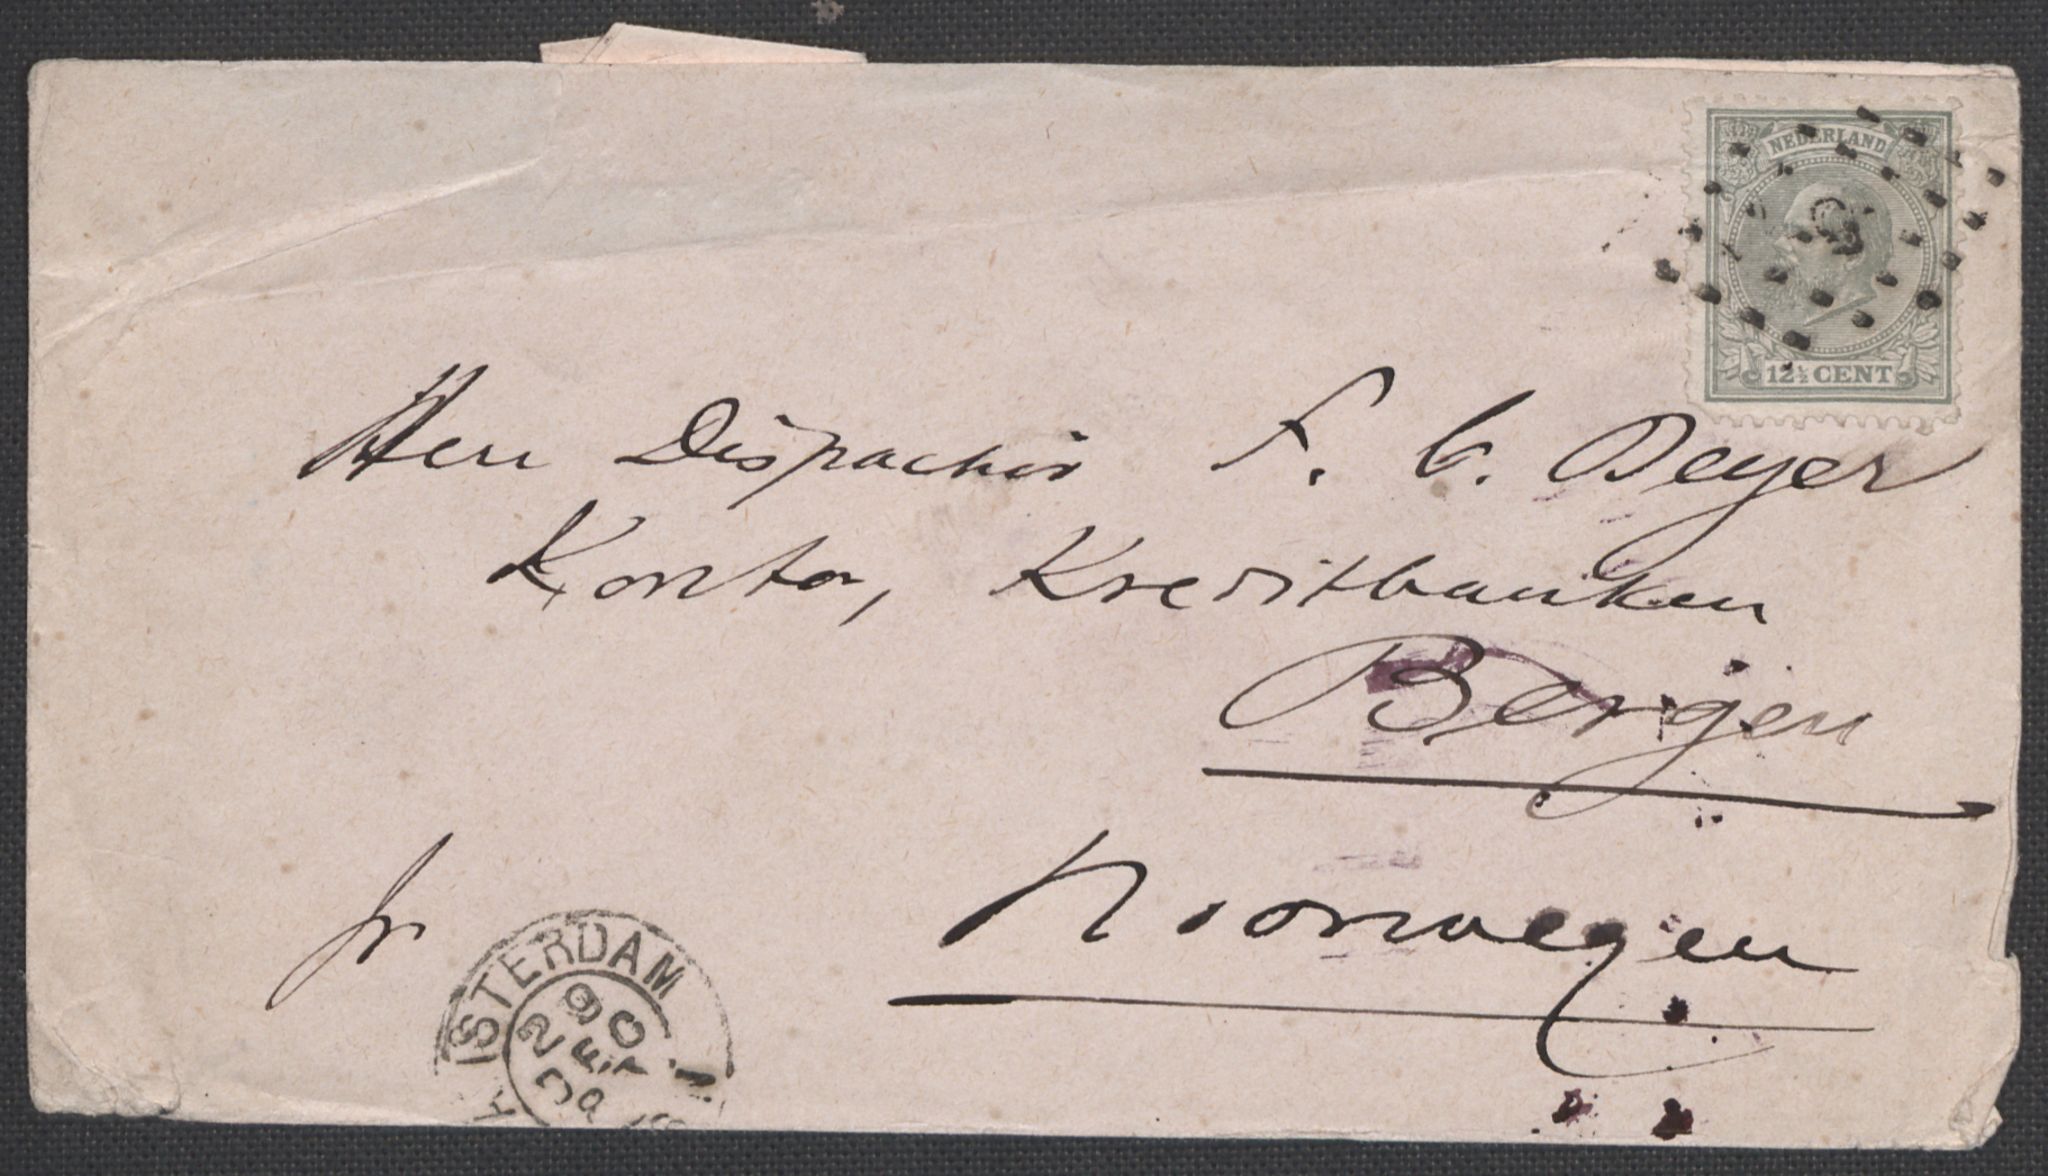 NEDERLAND
12½ CENT
Herr Dispachør F. C. Beyer
Kontor, Kreditbanken
Bergen
fr
Noorwegen
AMSTERDAM